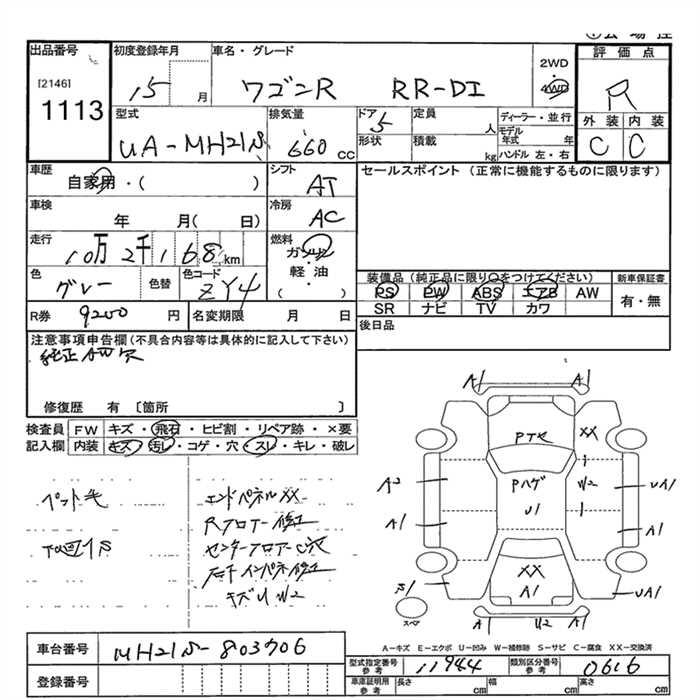 出品番号 初度登録年月 車名・グレード 評価点
[2146] 1113 15 月 ワゴンR RR-DI 2WD 4WD R
型式 排気量 ドア 定員 ディーラー・並行 外装 内装
UA-MH21S 660 CC 5 人 モデル年式 年 C C
形状 積載 kg ハンドル 左・右
車歴 シフト セールスポイント (正常に機能するものに限ります)
自家用・( ) AT
車検 冷房
年 月( 日) AC
走行 燃料
10万2千168km ガソリン
軽・油
( )
色 色替 色コード
グレー ZY4
装備品 (純正品に限り○をつけてください) 新車保証書
PS PW ABS エアB AW 有・無
SR ナビ TV カワ
R券 9200 円 名変期限 月 日
後日品
注意事項申告欄 (不具合内容等は具体的に記入して下さい)
純正AW欠
修復歴 有 〔箇所 〕
検査員 FW キズ・飛石・ヒビ割・リペア跡・×要
記入欄 内装 キズ・汚レ・コゲ・穴・スレ・キレ・破レ
ペット毛
エンドパネルXX
Rフロアー修正
キズU W2
A1 A1
PTR XX
A2 Pハゲ W2 UA1
U1
A1 A1
XX
A1 UA1
スペア
A1 U2 A1
A-キズ E-エクボ U-凹み W-補修跡 S-サビ C-腐食 XX-交換済
車台番号 MH21S-803706
型式指定番号 参考 11944 類別区分番号 参考 0616
登録番号
車庫証明用 参考 長さ cm 幅 cm 高さ cm